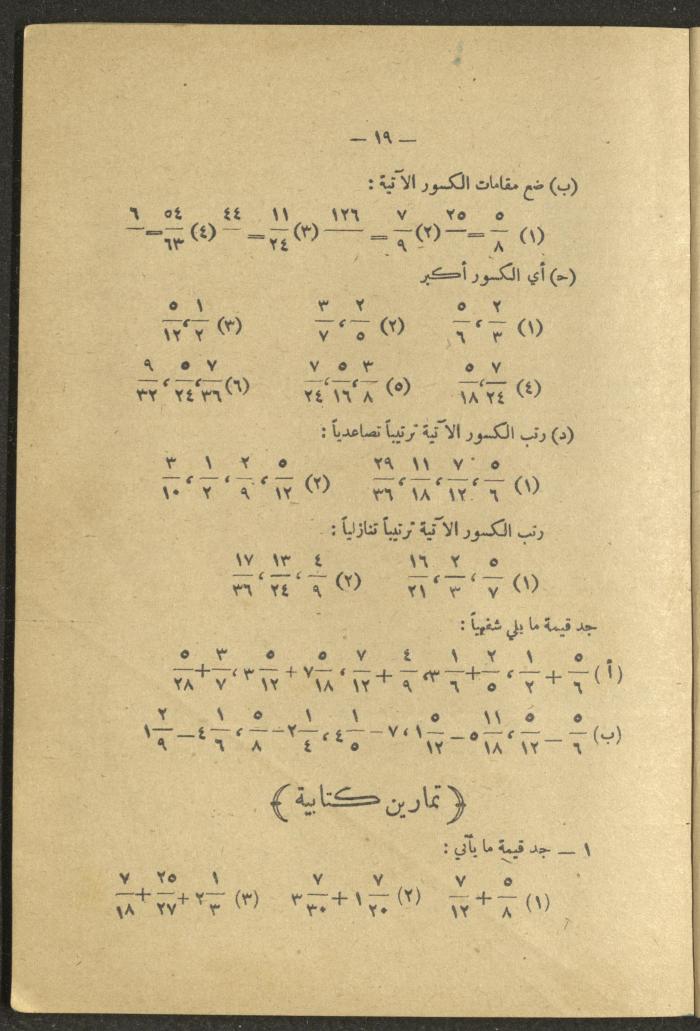 — ١٩ —
(ب) ضع مقامات الكسور الآتية :
(١) ٥/٨ = ٢٥/ (٢) ٧/٩ = ١٢٦/ (٣) ١١/٢٤ = ٤٤/ (٤) ٥٤/٦٣ = ٦/
(ح) أي الكسور أكبر
(١) ٢/٣ ، ٥/٦ (٢) ٢/٥ ، ٣/٧ (٣) ١/٢ ، ٥/١٢
(٤) ٧/٢٤ ، ٥/١٨ (٥) ٣/٨ ، ٥/١٦ ، ٧/٢٤ (٦) ٧/٣٦ ، ٥/٢٤ ، ٩/٣٢
(د) رتب الكسور الآتية ترتيباً تصاعدياً :
(١) ٥/٦ ، ٧/١٢ ، ١١/١٨ ، ٢٩/٣٦ (٢) ٥/١٢ ، ٢/٩ ، ١/٢ ، ٣/١٠
رتب الكسور الآتية ترتيباً تنازلياً :
(١) ٥/٧ ، ٢/٣ ، ١٦/٢١ (٢) ٤/٩ ، ١٣/٢٤ ، ١٧/٣٦
جد قيمة ما يلي شفهياً :
(أ) ٥/٦ + ١/٢ ، ٢/٥ + ١/٦ ٣ ، ٤/٩ + ٧/١٢ ، ٥/١٨ ٧ + ٥/١٢ ٣ ، ٣/٧ + ٥/٢٨
(ب) ٥/٦ — ٥/١٢ ، ١١/١٨ ٥ — ٥/١٢ ١ ، ٧ — ١/٥ ٤ ، ١/٤ ٢ — ٥/٨ ، ١/٦ ٤ — ٢/٩ ١
﴿ تمارين كتابية ﴾
١ — جد قيمة ما يأتي :
(١) ٥/٨ + ٧/١٢ (٢) ٧/٢٠ ١ + ٧/٣٠ ٣ (٣) ١/٣ ٢ + ٢٥/٢٧ + ٧/١٨